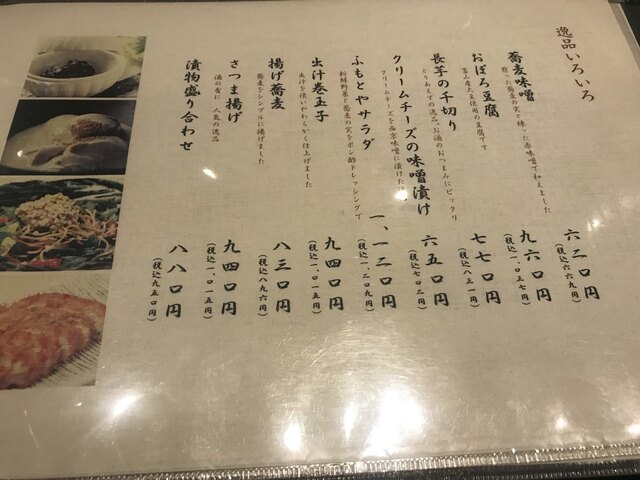 逸品いろいろ
蕎麦味噌
煎った蕎麦の実と練った赤味噌で和えました
六二〇円
(税込六六九円)
おぼろ豆腐
富山産大豆使用の豆腐です
九六〇円
(税込一、〇三七円)
長芋の千切り
とりあえずの逸品、お酒のおつまみにピッタリ
七七〇円
(税込八三一円)
クリームチーズの味噌漬け
クリームチーズを西京味噌に漬けた
六五〇円
(税込七〇二円)
ふもとやサラダ
新鮮野菜と蕎麦の実をポン酢ドレッシングで
一、一二〇円
(税込一、二〇九円)
出汁巻玉子
出汁を使いやわらかく仕上げました
九四〇円
(税込一、〇一五円)
揚げ蕎麦
蕎麦をシンプルに揚げました
八三〇円
(税込八九六円)
さつま揚げ
酒の肴に人気の逸品
九四〇円
(税込一、〇一五円)
漬物盛り合わせ
八八〇円
(税込九五〇円)